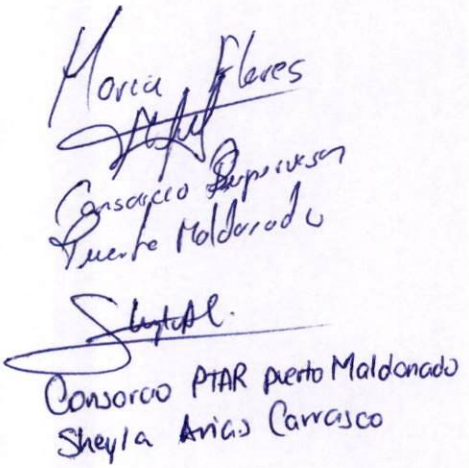 Maria Flores
Consorcio Supervisor
Puerto Maldonado
Consorcio PTAR puerto Maldonado
Sheyla Arias Carrasco